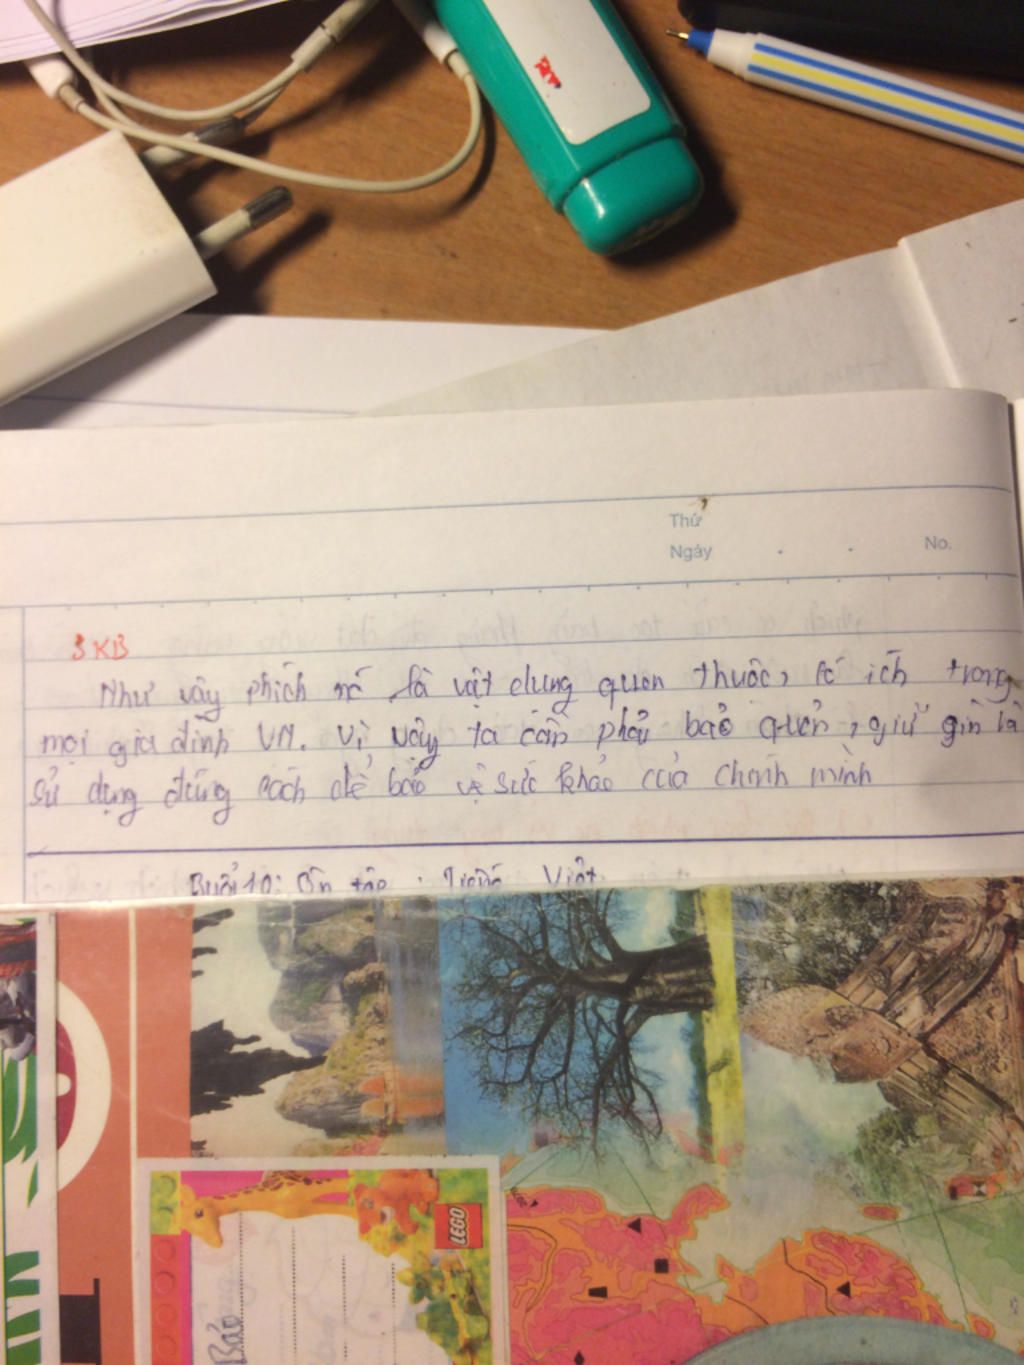 Thứ
Ngày . . No.
3 KB
Như vậy phích nc là vật dụng quen thuôc, có ích trong
mọi gia đình VN. Vì vậy ta cần phải bảo quản, giữ gìn là
sử dụng đúng cách để bảo vệ sức khỏe của chính mình
Buổi 10: Ôn tập : Tiếng Việt
LEGO
Bảo